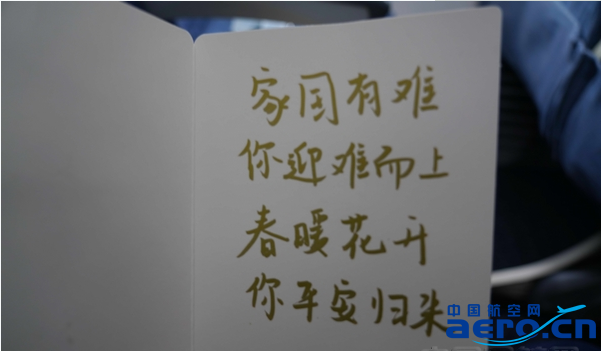 家国有难
你迎难而上
春暖花开
你平安归来
中国航空网
aero.cn